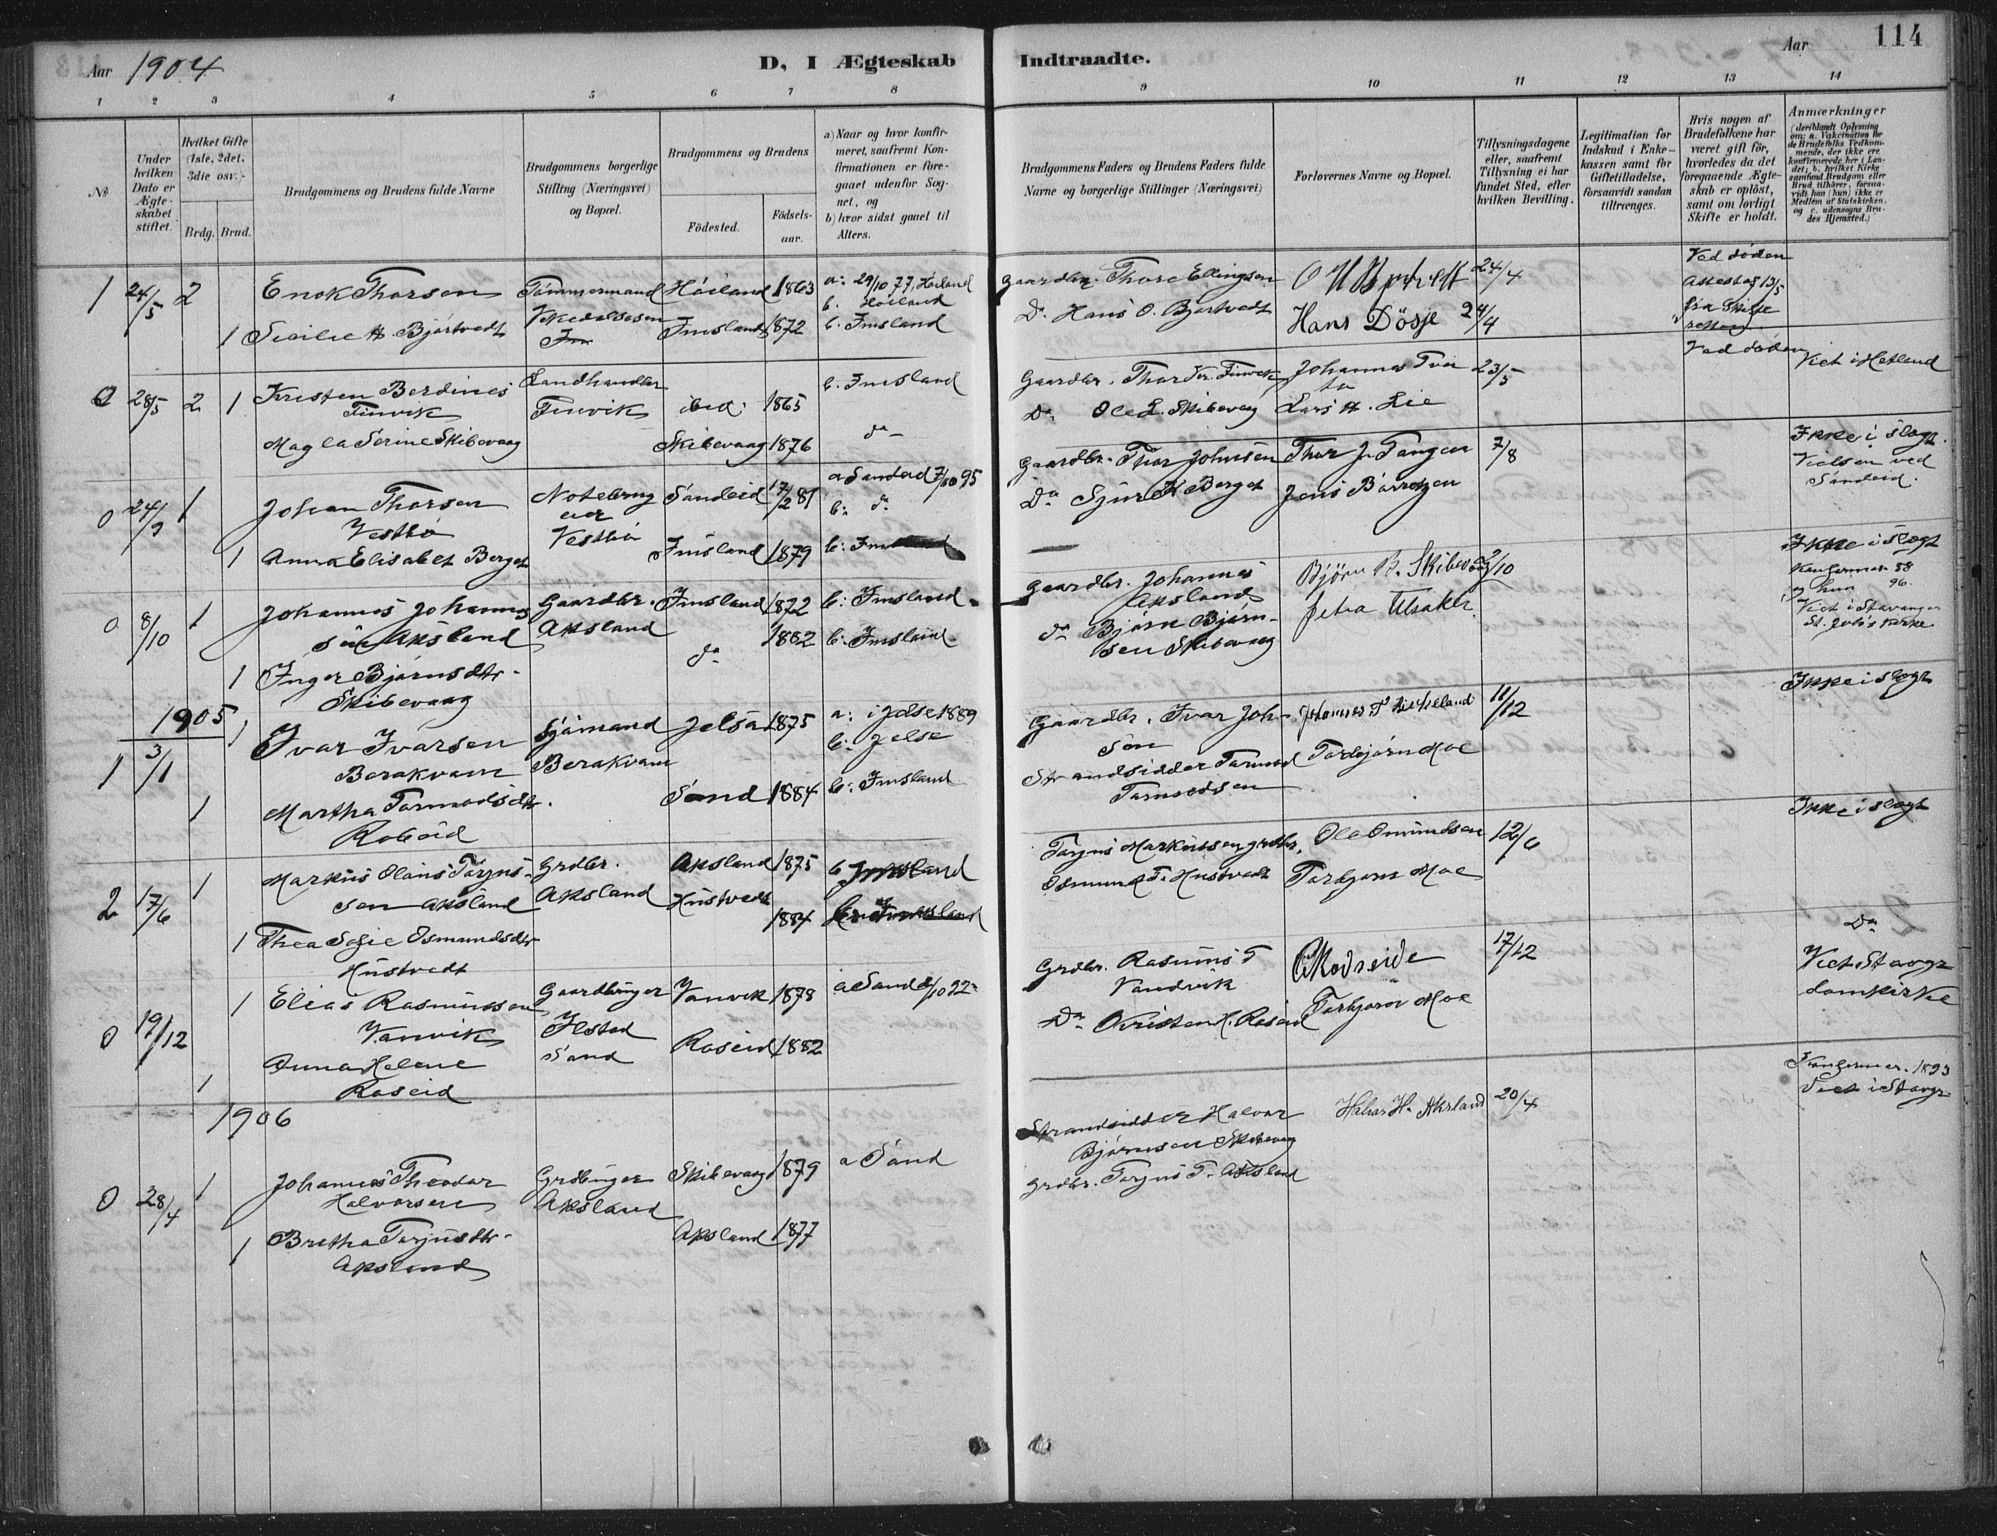 Aar 1904
D. I Ægteskab Indtraadte.
Aar
114
1 2 3 4 5 6 7 8 9 10 11 12 13 14
No
Under hvilken Dato er Ægteskabet stiftet.
Hvilket Gifte (1ste, 2det, 3die osv.)
Brdg. Brud.
Brudgommens og Brudens fulde Navne
Brudgommens borgerlige Stilling (Næringsvei) og Bopæl.
Brudgommens og Brudens
Fødested.
Fødselsaar.
a) Naar og hvor konfirmeret, saafremt Konfirmationen er foregaaet udenfor Sognet, og
b) hvor sidst gaaet til Alters.
Brudgommens Faders og Brudens Faders fulde Navne og borgerlige Stillinger (Næringsvei)
Forlovernes Navne og Bopæl.
Tillysningsdagene eller, saafremt Tillysning ei har fundet Sted, efter hvilken Bevilling.
Legitimation for Indskud i Enkekassen samt for Giftetilladelse, forsaavidt saadan tiltrænges.
Hvis nogen af Brudefolkene har været gift før, hvorledes da det foregaaende Ægteskab er opløst, samt om lovligt Skifte er holdt.
Anmærkninger
(deriblandt Oplysning om: a. Vakcination for de Brudefolks Vedkommende, der ikke ere konfirmerede her i Landet; b. hvilket Kirkesamfund Brudgom eller Brud tilhører, forsaavidt han (hun) ikke er Medlem af Statskirken, og c. udensogns Brudes Hjemsted.)
1 24/5 2 Enok Thorsen Tømmermand Høiland 1863 a: 29/10 77, Høiland
b. Høiland
1 Secilie H. Bjørtvedt Imsland 1872 b. Imsland
Gaardbr. Thore Ellingsen 24/4
D. Hans O. Bjortvedt Hans Dösje 24/4
Ved døden
Attestas 13/5
fra Skifte
retten
28/5 2 1 Kristen Berdines Landhandler
Tinvik Tinvik ibid. 1865 b. Imsland
Magla Serine Skibevaag Skibevaag 1876 da
Gaardbr. Thor Kr. Tinvik Johannes 23/5
Da Ole L. Skibevaag Lars H. Lie
Ved døden
Viet i Hetland
0 24/9 1 Johan Thorsen Sandeid 17/2 81 a Sandeid 7/10 95
Vestbø Vestbø b: da
1 Anna Elisabet Berget Imsland 1879 b: Imsland
Gaardbr. Thor Johnsen Thor J. Tangen 7/8
Da Sjur K Berget Jens Børretzen
Ikke i slægt.
Vielsen ved
Sandeid.
0 8/10 1 Johannes Johannes Gaardbr. Imsland 1872 b: Imsland
sen Aksland Aksland 1882 b: Imsland
da
1 Inger Bjørnsdtr.
Skibevaag
Gaardbr. Johannes Bjørn B. Skibevaag /10
Aksland
da Bjørn Bjørn-
sen Skibevaag
Ikke i slægt
Konfermer. 88
og hun 96.
Viet i Stavanger
St. Kirke
1905
1 3/1 1 Ivar Ivarsen Sjømand Jelsa 1875 a: i Jelse 1889
Berakvam Berakvam b: Jelse
1 Martha Tormodsdtr. Sand 1884 b: Imsland
Gaardbr. Ivar Joh- 11/12
sen
Strandsidder Tormod Torbjørn Moe
Tormodsen
Ikke i slægt
2 17/6 1 Markus Olaus Torjus- Grdbr. Aksland 1875 b Imsland
sen Aksland Aksland Hustvedt 1884
1 Thea Sofie Osmundsdtr
Hustvedt
Torjus Markussen, grdbr. Ole Osmundsen 12/6
Osmund T. Hustvedt Torbjørn Moe
Ikke i slægt
0 19/12 1 Elias Rasmussen Gaardbruger Vanvik 1878 a Sand
Vanvik Ilsted
Sand
1 Anna Helene Roseid 1882
Roseid
Grdbr. Rasmus T 17/12
Vandvik
Da Kristen H. Roseid Torbjørn Moe
Da
Viet i Stavgr
domkirke
1906
0 28/4 1 Johannes Theodor Grdbruger Skibevaag 1879 a Sand
Halvorsen Aksland
1 Bretha Torjusdtr. Aksland 1877
Aksland
Strandsidder Halvor Halvor H. Aksland 20/4
Bjørnsen Skibevaag
Grdbr. Torjus T. Aksland
Konfermer. 1893
Viet i Stavgr